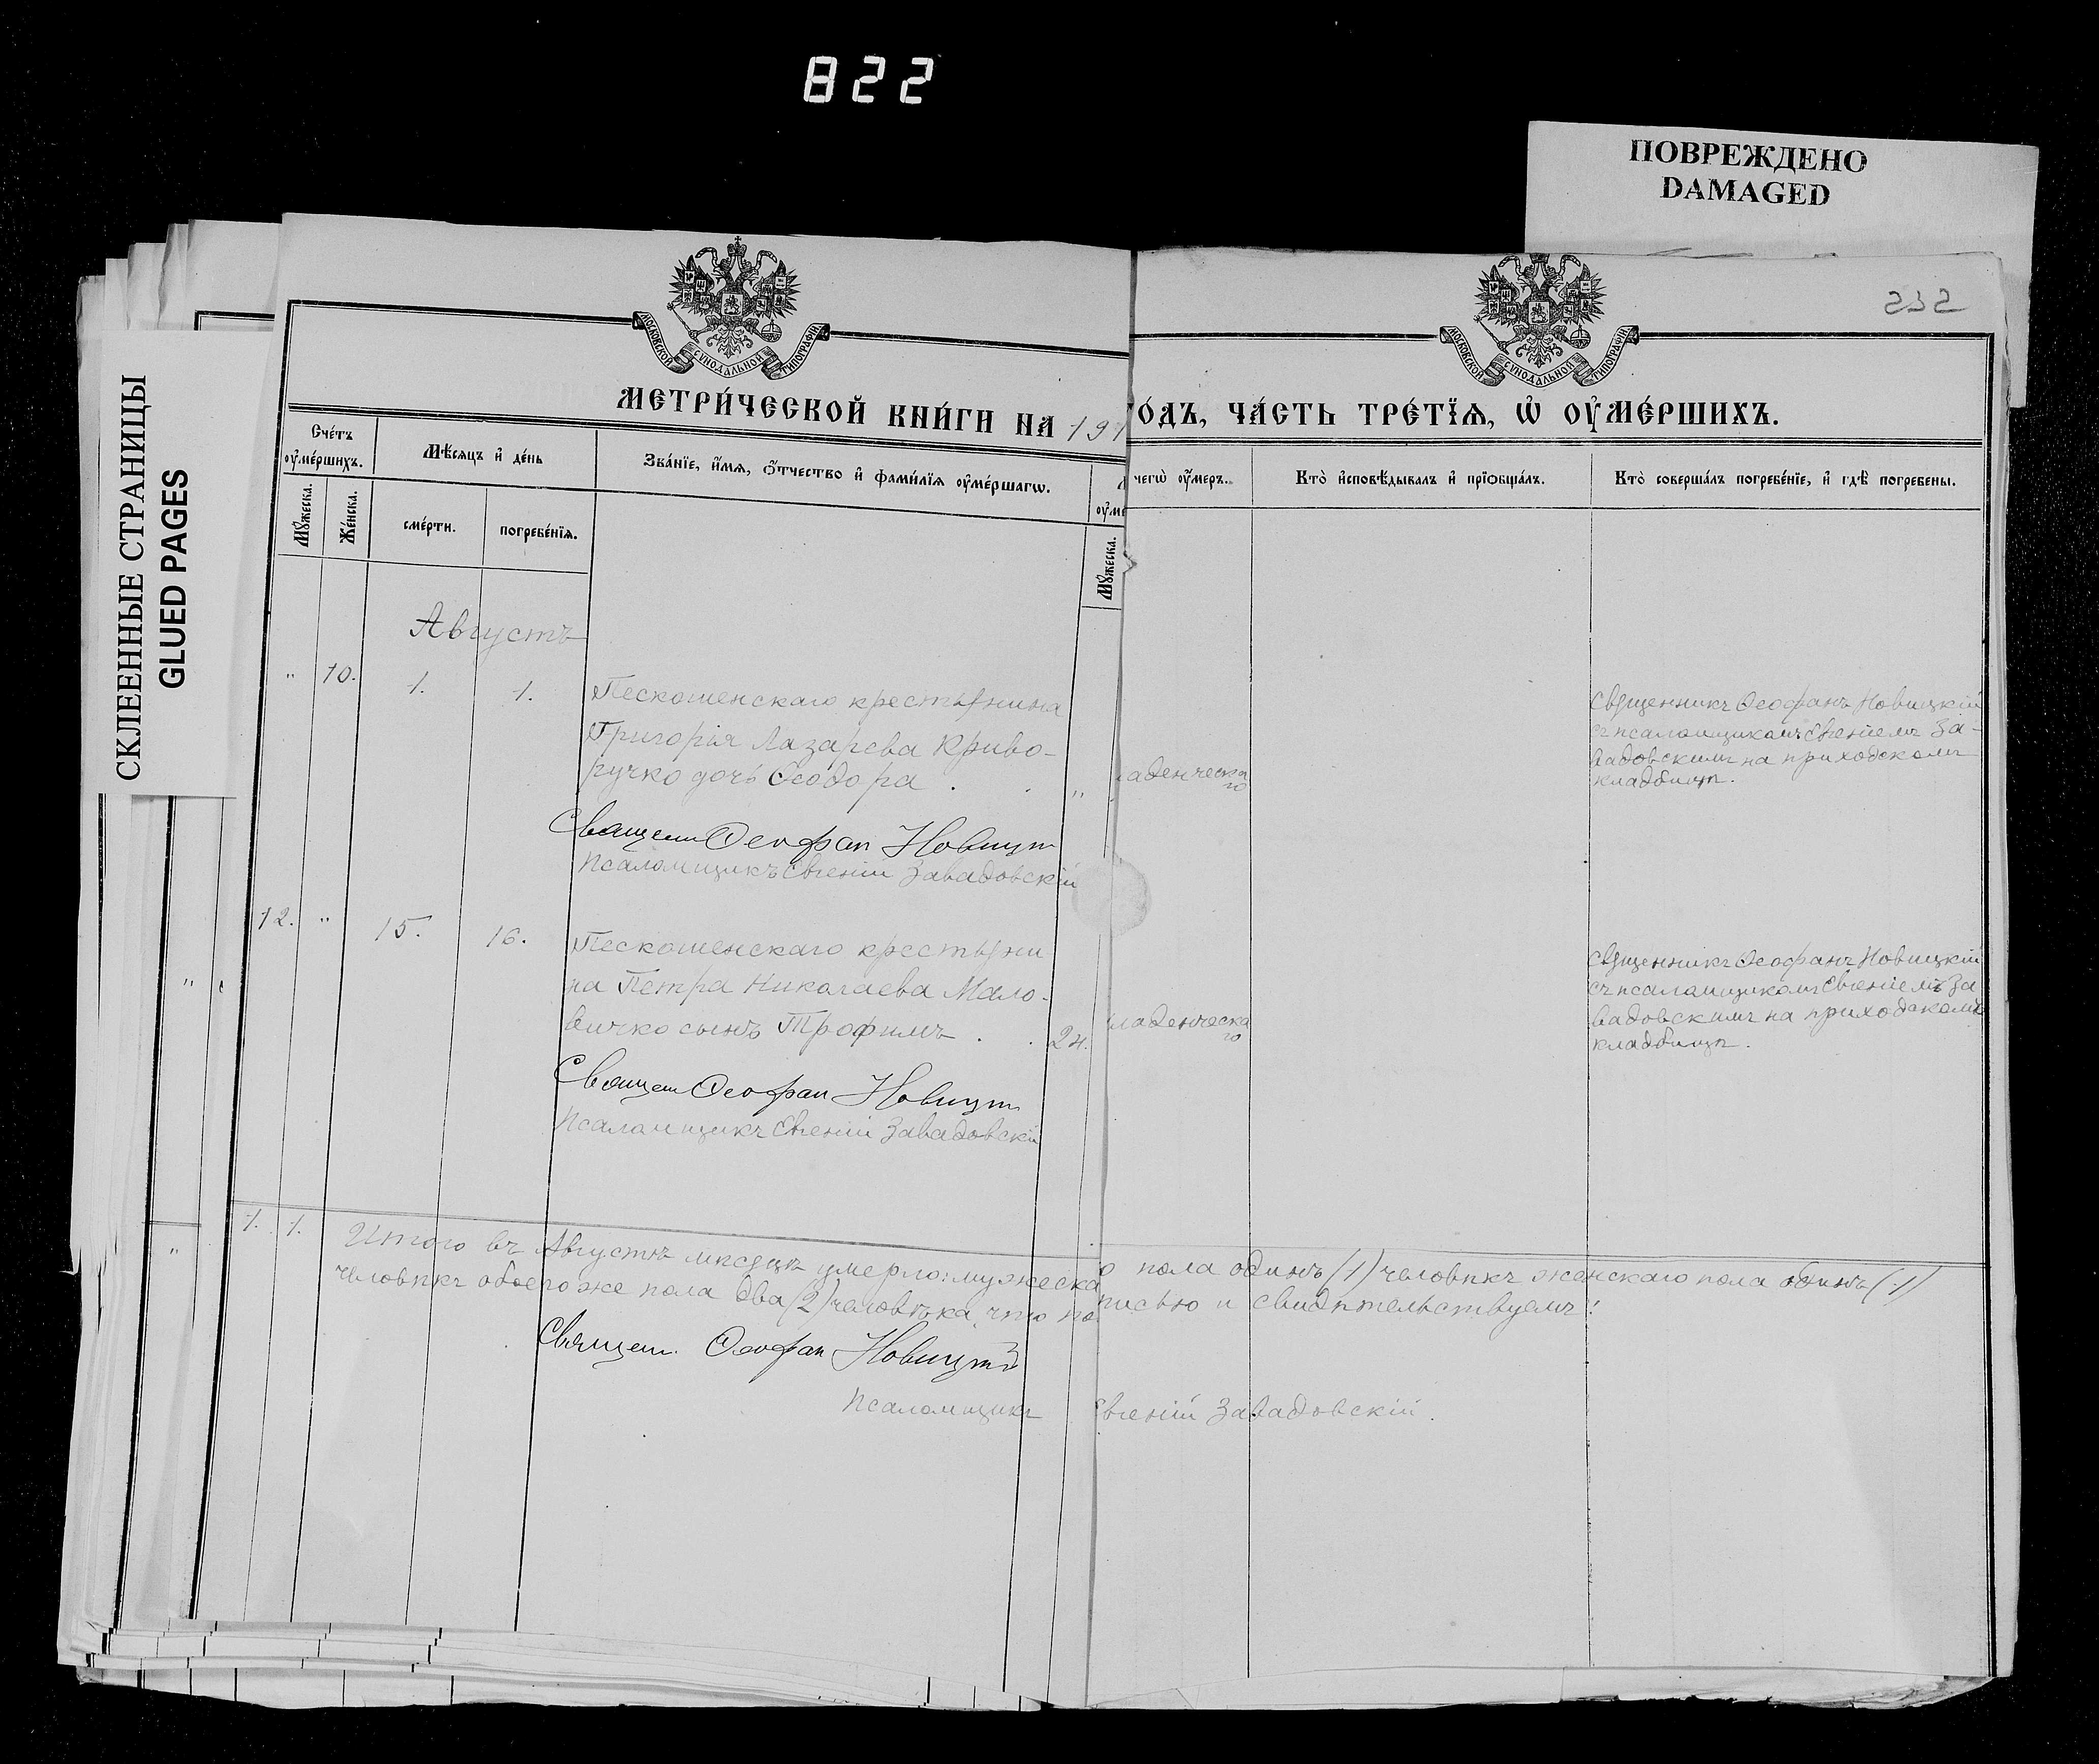 822
ПОВРЕЖДЕНО
DAMAGED
СКЛЕЕННЫЕ СТРАНИЦЫ
GLUED PAGES
232
МОСКОВСКОЙ СѴНОДАЛЬНОЙ ТИПОГРАФІИ
МОСКОВСКОЙ СѴНОДАЛЬНОЙ ТИПОГРАФІИ
МЕТРИ́ЧЕСКОЙ КНИ́ГИ НА 191
ГО́ДЪ, ЧА́СТЬ ТРЕ́ТЇѦ, Ѡ҆ ОУ҆МЕ́РШИХЪ.
Сче́тъ оу҆ме́ршихъ.
Мѣ́сѧцъ и҆ де́нь
Зва́нїе, и҆́мѧ, ѻ҆́тчество и҆ фами́лїѧ оу҆ме́ршагѡ.
оу҆ме
чегѡ̀ оу҆́меръ.
Кто̀ и҆сповѣ́дывалъ и҆ прїѡбща́лъ.
Кто̀ соверша́лъ погребе́нїе, и҆ гдѣ̀ погребены.
Мꙋ́жеска.
Же́нска.
сме́рти.
погребе́нїѧ.
Мꙋ́жеска.
Августъ
" 10. 1. 1. Пескошенскаго крестьянина
Григорія Лазарева Криво-
ручко дочь Ѳеодора . . "
Священ Ѳеофан Новицкі
Псаломщикъ Евгеній Завадовскій
аденческа
го
Священникъ Ѳеофанъ Новицкій
съ псаломщикомъ Евгеніемъ За-
вадовскимъ на приходскомъ
кладбищѣ.
12. " 15. 16. Пескошенскаго крестьяни
на Петра Николаева Мало-
вичко сынъ Трофимъ . . 2н.
Священ Ѳеофан Новицкі
Псаломщикъ Евгеній Завадовскій
ладенческа
го
Священникъ Ѳеофанъ Новицкій
съ псаломщикомъ Евгеніемъ За
вадовскимъ на приходскомъ
кладбищѣ.
1. 1. Итого въ Августѣ мѣсяцѣ умерло: мужеска
о пола одинъ (1) человѣкъ женскаго пола одинъ (1)
человѣкъ обоего же пола два (2) человѣка, что по
писью и свидѣтельствуемъ:
Священ. Ѳеофан Новицкій
Псаломщикъ Евгеній Завадовскій.